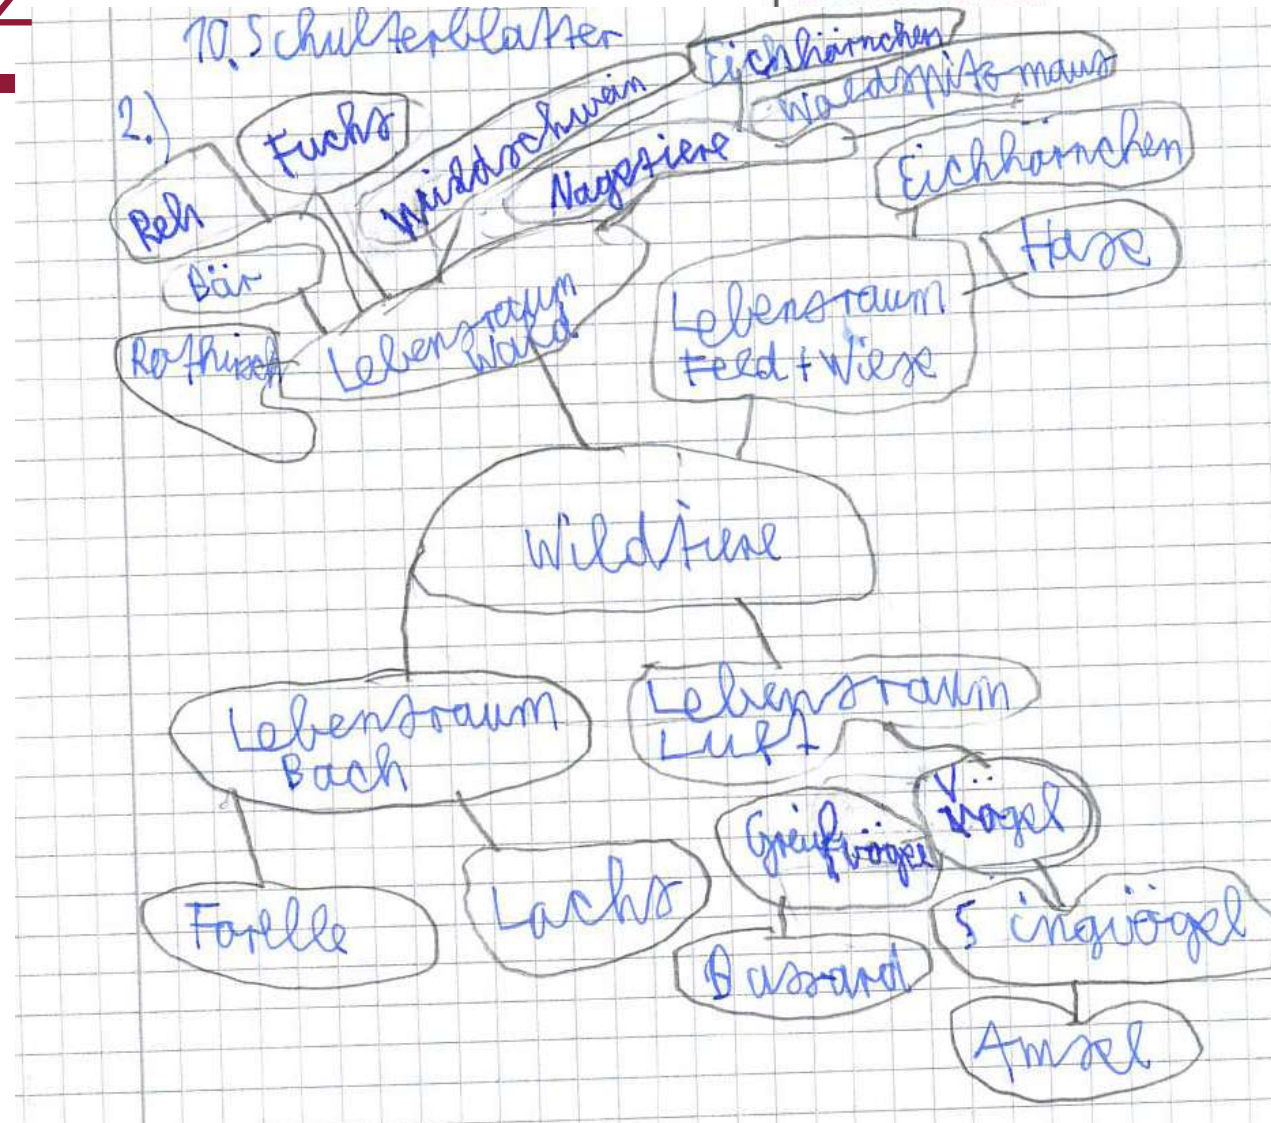 10. Schulterblatter
2.)
Eichhörnchen
Waldspitzmaus
Fuchs
Wildschwein
Nagetiere
Eichhörnchen
Reh
Bär
Hase
Rothirsch
Lebensraum
Wald
Lebensraum
Feld + Wiese
Wildtiere
Lebensraum
Bach
Lebensraum
Luft
Vögel
Greifvögel
Forelle
Lachs
Singvögel
Bussard
Amsel